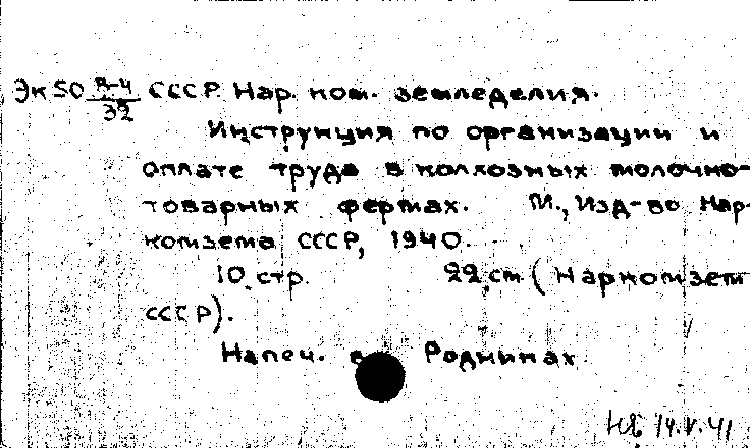 Эк 50 А-4/32 СССР. Нар. ком. земледелия.
Инструкция по организации и
оплате труда в колхозных молочно-
товарных фермах. М., Изд-во Нар-
комзема СССР, 1940.
10 стр. 22 см (Наркомзем
СССР).
Напеч. в Родниках
14.V.41